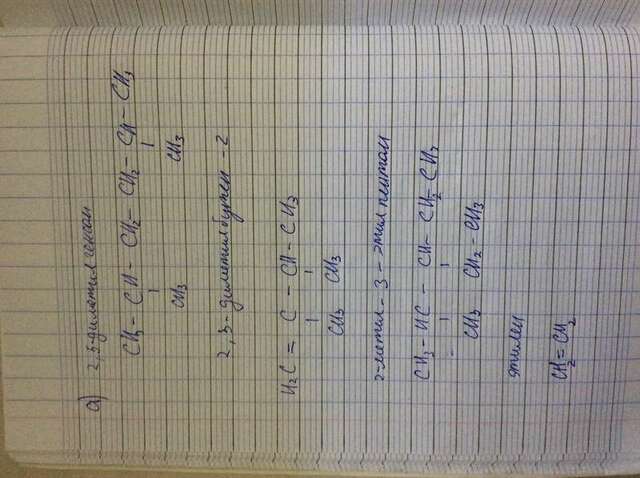 а) 2,5-диметилгексан
CH3 - CH - CH2 - CH2 - CH - CH3
CH3 CH3
2,3-диметилбутен-2
H2C = C - CH - CH3
CH3 CH3
2-метил-3-этилпентан
CH3 - HC - CH - CH2 - CH3
CH3 CH2 - CH3
этилен
CH2 = CH2